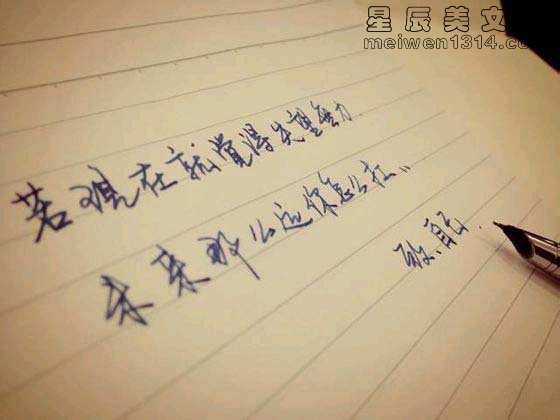 星辰美文
meiwen1314.co
若现在就觉得失望無力
未来那么远你怎么扛..
致.自己.